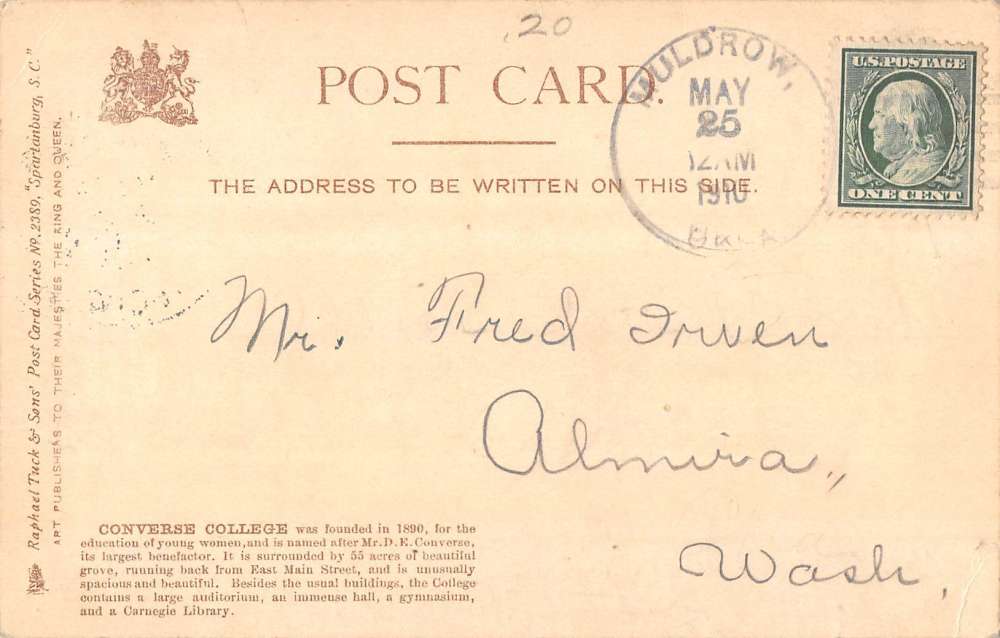 .20
POST CARD.
THE ADDRESS TO BE WRITTEN ON THIS SIDE.
MULDROW,
MAY
25
12AM
1910
OKLA
U.S. POSTAGE
ONE CENT
Mr. Fred Irven
Almira,,
Wash,
Raphael Tuck & Sons' Post Card Series No. 2389, "Spartanburg, S. C."
ART PUBLISHERS TO THEIR MAJESTIES THE KING AND QUEEN.
CONVERSE COLLEGE was founded in 1890, for the
education of young women, and is named after Mr. D. E. Converse,
its largest benefactor. It is surrounded by 55 acres of beautiful
grove, running back from East Main Street, and is unusually
spacious and beautiful. Besides the usual buildings, the College
contains a large auditorium, an immense hall, a gymnasium,
and a Carnegie Library.